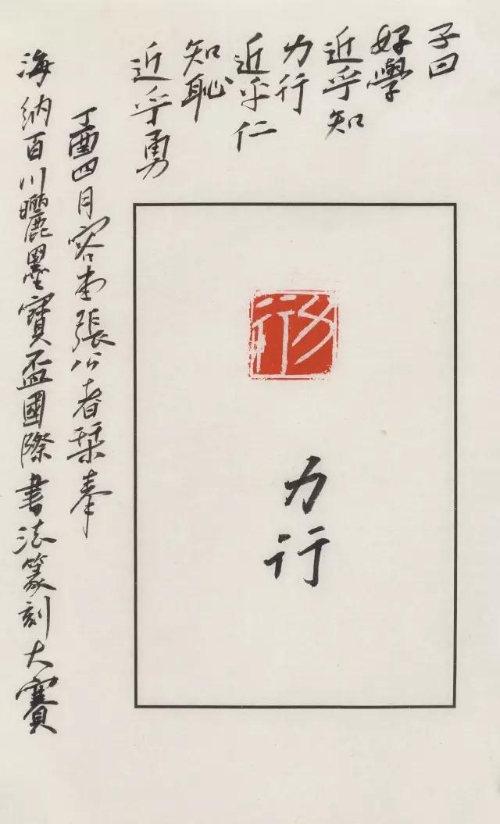 子曰
好學
近乎知
力行
近乎仁
知恥
近乎勇
丁酉四月 張公者栞奉
海納百川曬墨寶盃國際書法篆刻大賽
力行
力行